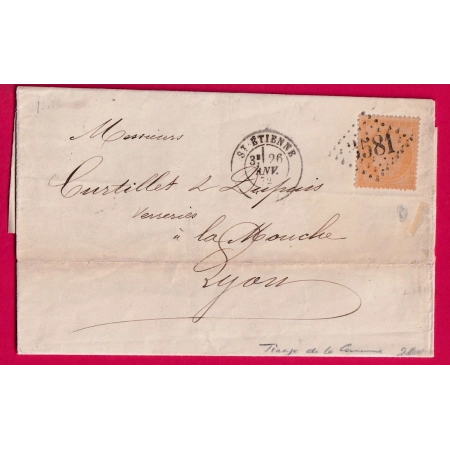 Messieurs
Curtillet & Dupuis
Verreries
à la Mouche
Lyon
ST-ETIENNE
3E 26
JANV.
72
3581
Tirage de la Commune